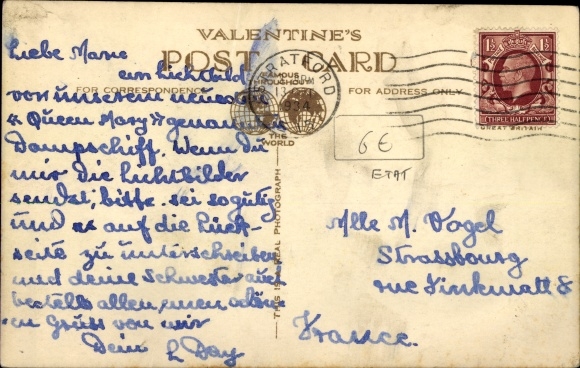 VALENTINE'S
POST CARD
FOR CORRESPONDENCE
FOR ADDRESS ONLY
FAMOUS
THROUGHOUT
THE
WORLD
STRATFORD
1934
THIS IS A REAL PHOTOGRAPH
1½ 1½
THREE HALFPENCE
6 €
ETAT
Liebe Marie
ein Lichtbild
von unserem neuen
"Queen Mary" genannten
Dampschiff. Wenn du
mir die Lichtbilder
sendet, bitte sei so gütig
und es auf die Rück-
seite zu unterschreiben
und deine Schwester auch
bestelle allen einen schön-
en Gruss von mir
Dein L Day
Mlle M. Vogel
Strassbourg
rue Finkmatt 8
France.